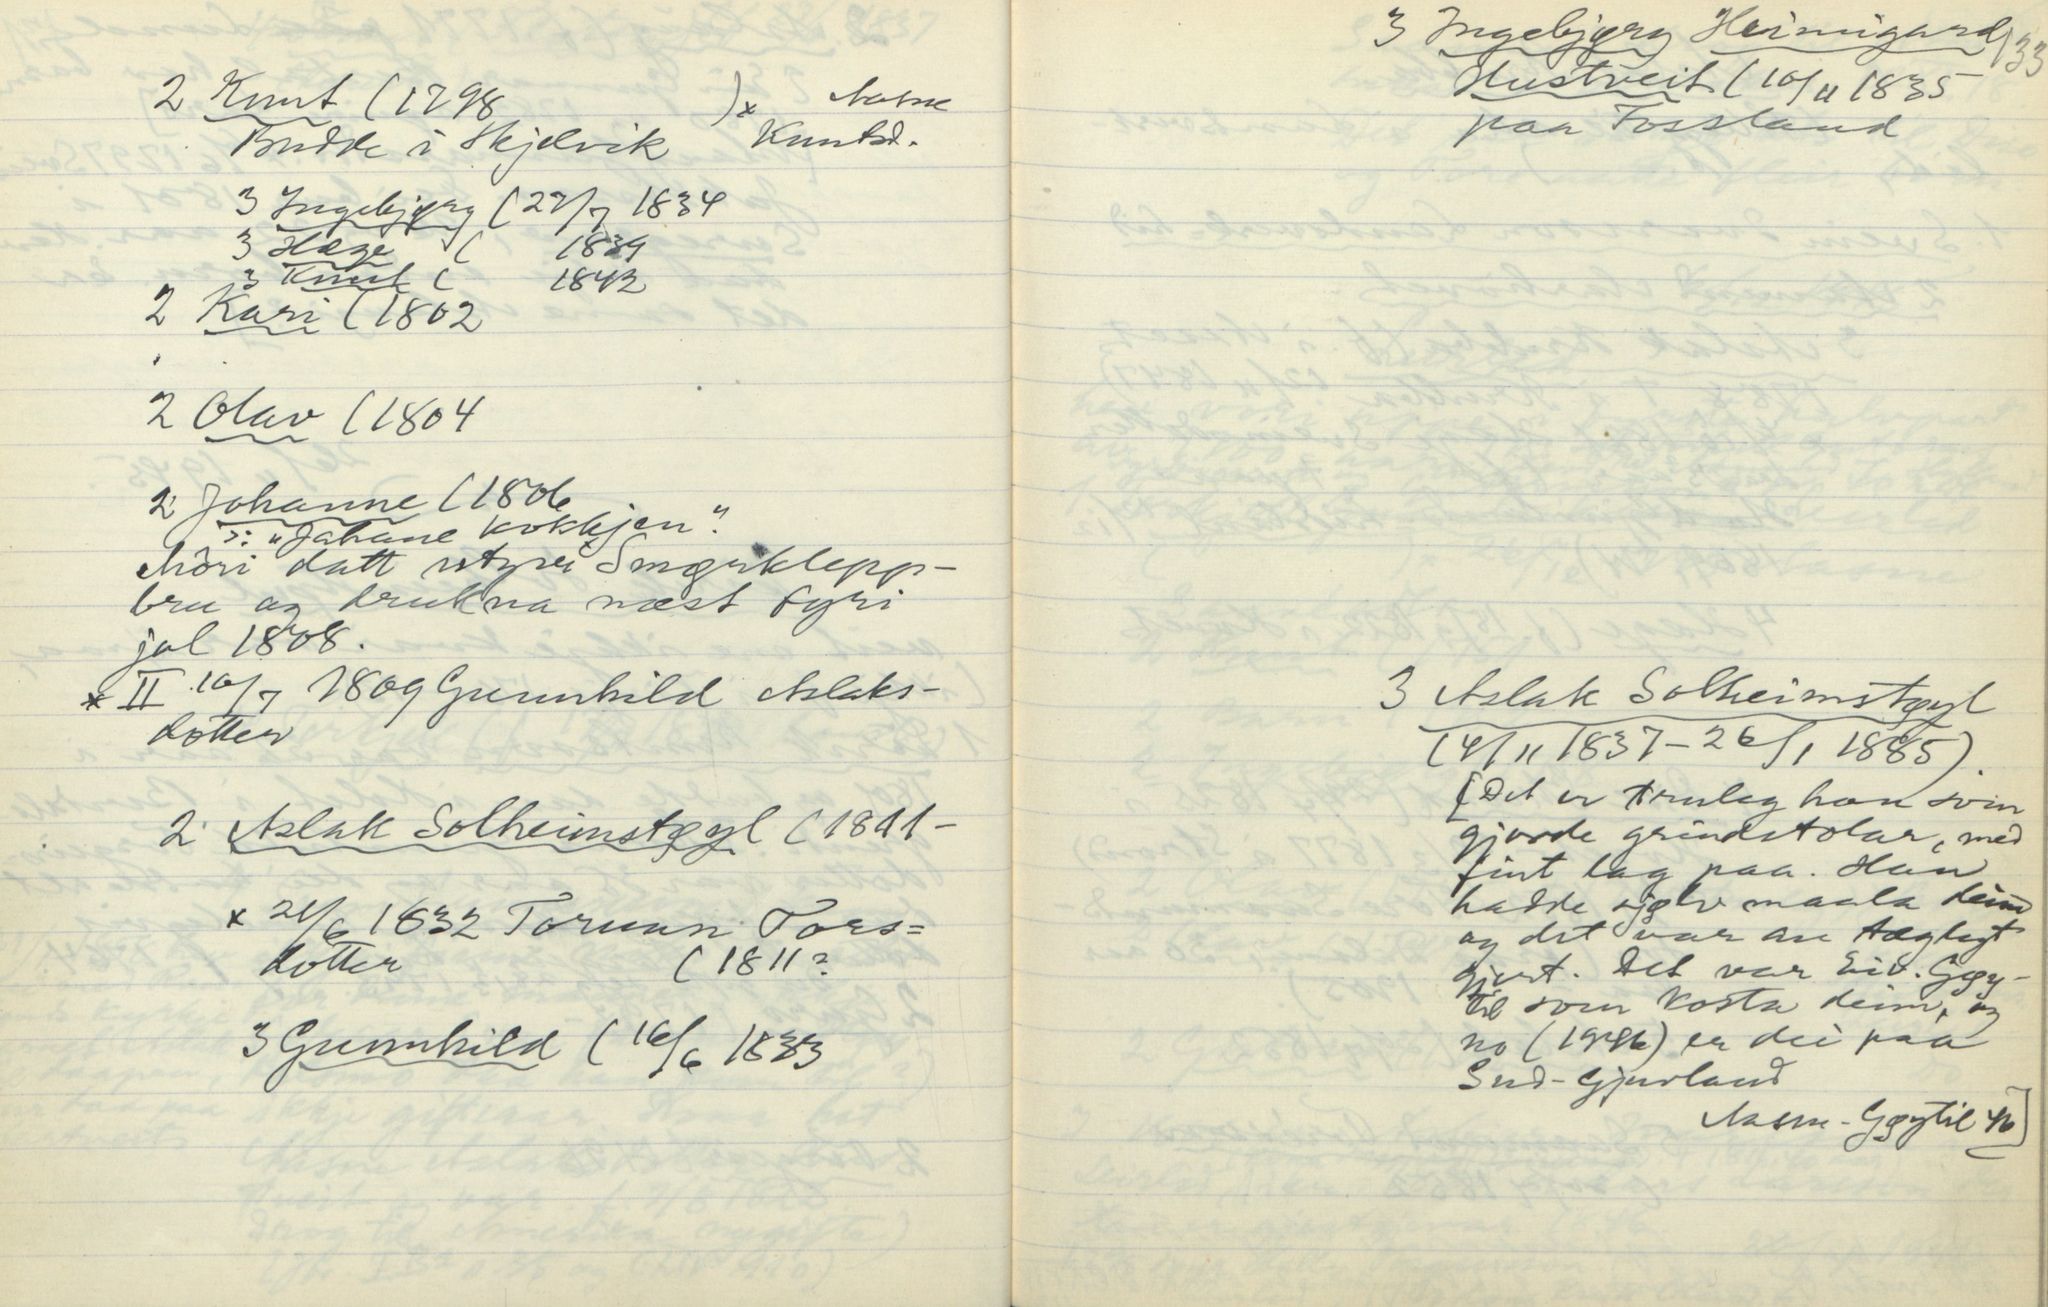 2 Knut (1798 )x Aasne
Budde i Skjelvik Knutsd.
3 Ingebjørg (27/7 1834
3 Hæge ( 1839
3 Knut ( 1842
2 Kari (1802
2 Olav (1804
2 Johanne (1806
ɔ: "Jahane kokkjen".
Mori datt utyvi Smørklepp-
bru og drukna næst fyri
jol 1808.
x II 10/7 1809 Gunnhild Aslaks-
dotter
2 Aslak Solheimstøyl (1811-
x 21/6 1832 Torunn Tors=
dotter (1811?
3 Gunnhild (16/6 1833
133
3 Ingebjørg Heimigard
Hustveit (10/11 1835
paa Fossland
3 Aslak Solheimstøyl
(4/11 1837 - 26/1 1885).
[Det er truleg han som
gjorde grindstolar, med
fint lag paa. Han
hadde sjølv maala deim
og det var an tægleg
gjort. Det var Eiv. Gøy-
til som kosta deim, og
no (1946) er dei paa
Sud-Gjuvland
Aasne Gøytil 46]